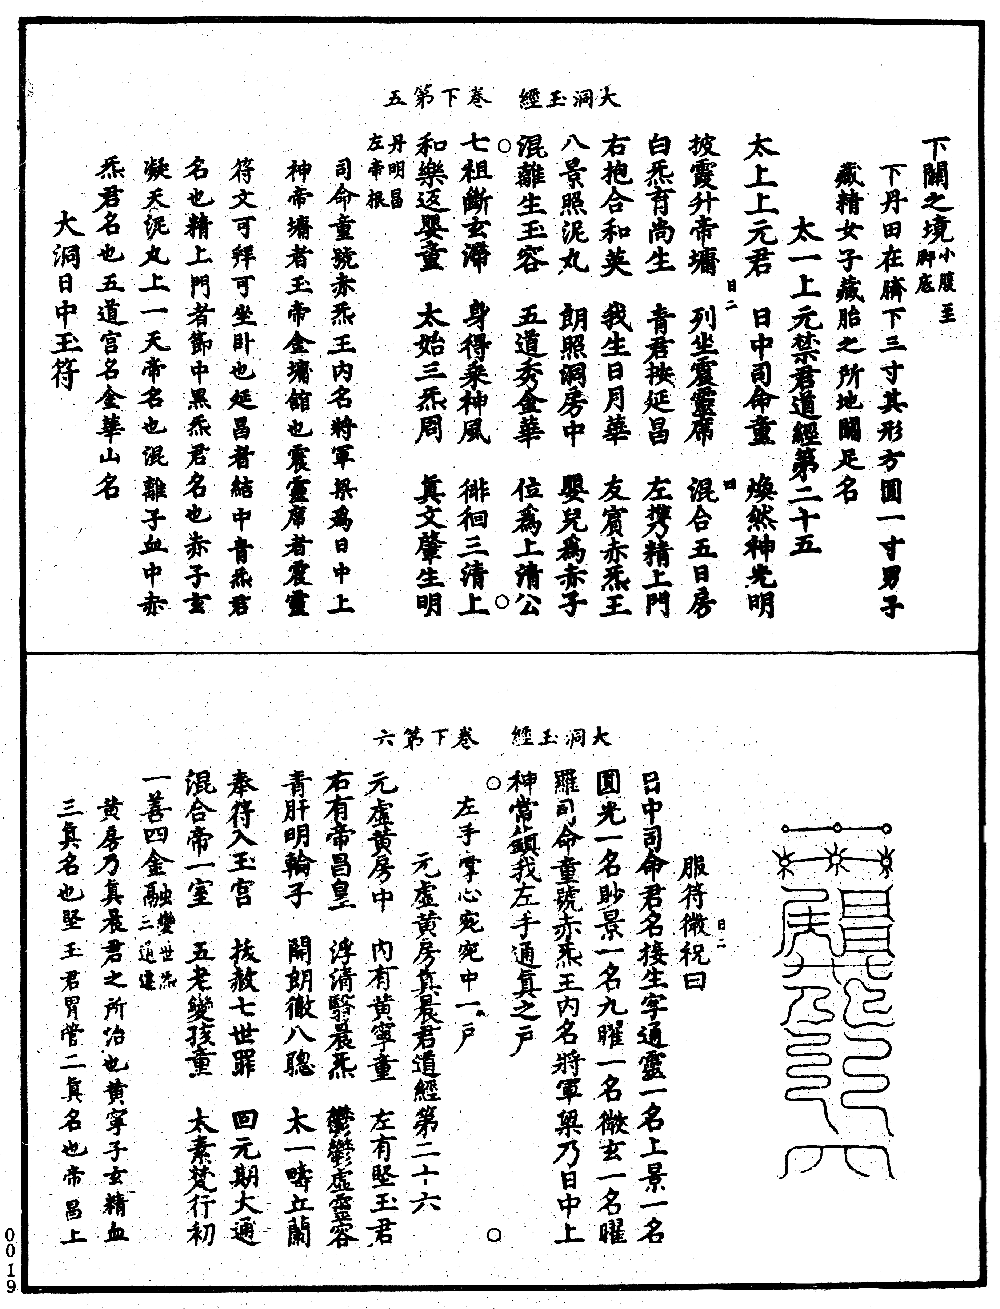 大洞玉經　卷下第五
下關之境小腹至脚底
下丹田在臍下三寸其形方圓一寸男子
藏精女子藏胎之所地關足名
太一上元禁君道經第二十五
太上上元君　日中司命童　煥然神光明
披霞升帝墉　列坐震靈席　混合五日房
白炁育尚生　青君挾延昌　左携精上門
右抱合和英　我生日月華　友賓赤炁王
八景照泥丸　朗照洞房中　嬰兒爲赤子
混離生玉容　五道秀金華　位爲上清公
七祖斷玄滯　身得乘神風　徘徊三清上
和樂返嬰童　太始三炁周　眞文肇生明
丹明昌
左帝根
司命童號赤炁王內名將軍梁爲日中上
神帝墉者玉帝金墉館也震靈席者震靈
符文可拜可坐臥也延昌者結中青炁君
名也精上門者節中黑炁君名也赤子玄
凝天泥丸上一天帝名也混離子血中赤
炁君名也五道宮名金華山名
大洞日中玉符
大洞玉經　卷下第六
服符微祝曰
日二
日中司命君名接生字通靈一名上景一名
圓光一名眇景一名九曜一名微玄一名曜
羅司命童號赤炁王內名將軍梁乃日中上
神常鎮我左手通眞之戶
左手掌心宛宛中一戶
元虛黃房眞晨君道經第二十六
元虛黃房中　內有黃寧童　左有堅玉君
右有帝昌皇　浮清翳晨炁　鬱鬱虛靈容
青肝明輪子　開朗徹八聰　太一疇丘蘭
奉符入玉宮　拔赦七世罪　回元期大通
混合帝一室　五老變孩童　太素梵行初
一善四金融變世炁三通達
黃房乃眞晨君之所治也黃寧子玄精血
三眞名也堅玉君胃管二眞名也帝昌上
0019